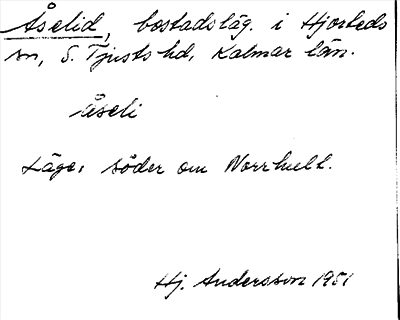 Åselid, bostadsläg. i Hjorteds
sn, S. Tjusts hd, Kalmar län.
åseli
Läge: söder om Norrhult.
Hj. Andersson 1951